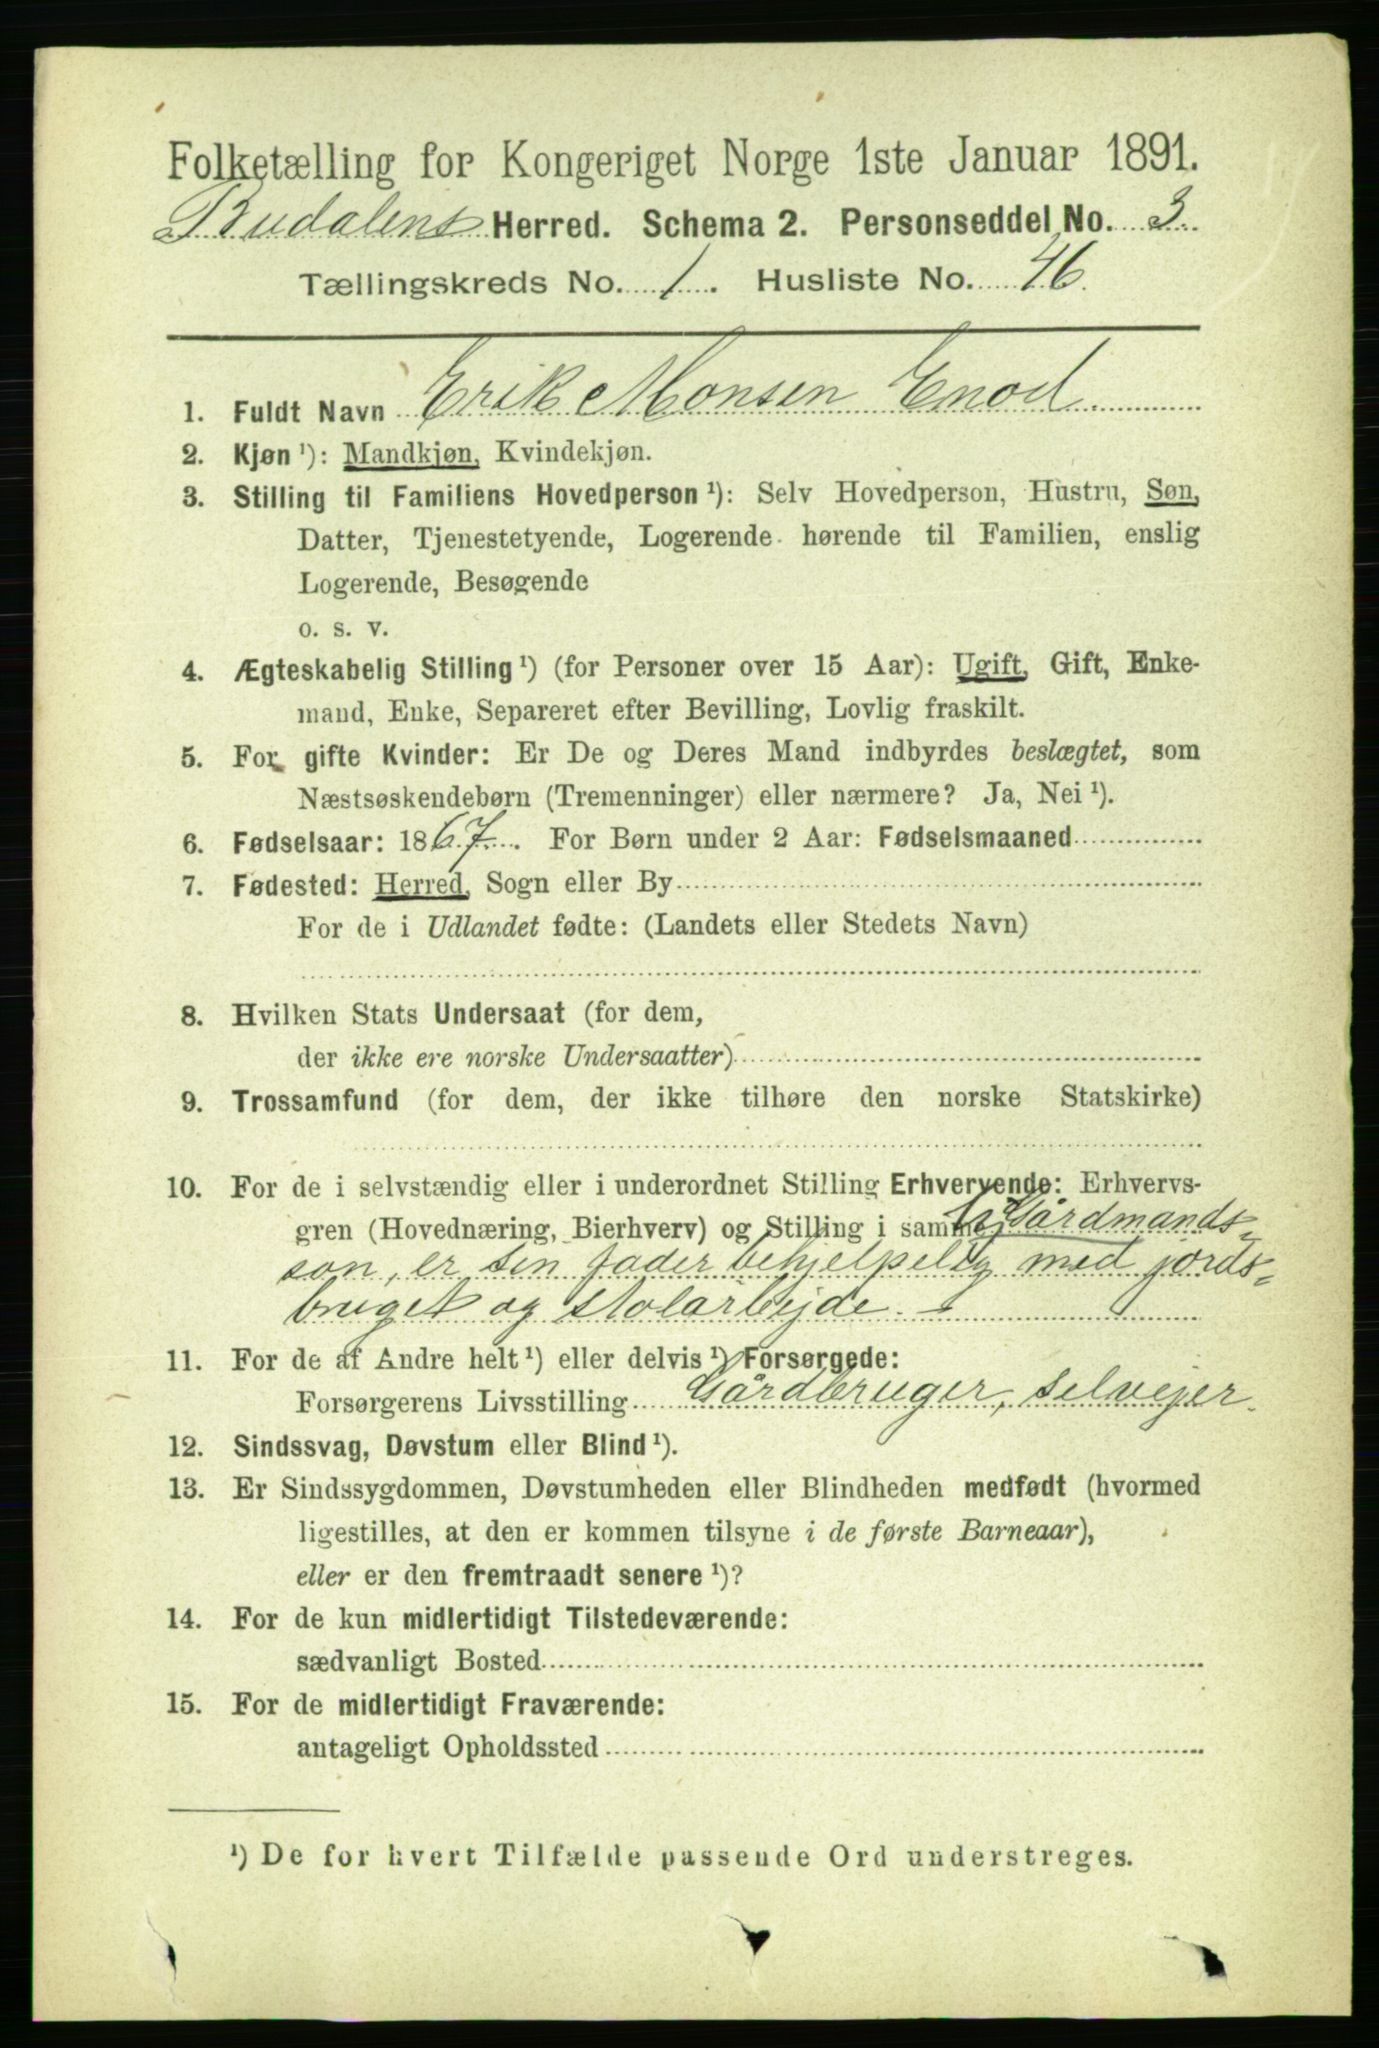 Folketælling for Kongeriget Norge 1ste Januar 1891.
Budalens Herred. Schema 2. Personseddel No. 3.
Tællingskreds No. 1. Husliste No. 46.
1. Fuldt Navn Erik Monsen Enod
2. Kjøn ¹): Mandkjøn, Kvindekjøn.
3. Stilling til Familiens Hovedperson ¹): Selv Hovedperson, Hustru, Søn,
Datter, Tjenestetyende, Logerende hørende til Familien, enslig
Logerende, Besøgende
o. s. v.
4. Ægteskabelig Stilling ¹) (for Personer over 15 Aar): Ugift, Gift, Enke-
mand, Enke, Separeret efter Bevilling, Lovlig fraskilt.
5. For gifte Kvinder: Er De og Deres Mand indbyrdes beslægtet, som
Næstsøskendebørn (Tremenninger) eller nærmere? Ja, Nei ¹).
6. Fødselsaar: 1867. For Børn under 2 Aar: Fødselsmaaned
7. Fødested: Herred, Sogn eller By
For de i Udlandet fødte: (Landets eller Stedets Navn)
8. Hvilken Stats Undersaat (for dem,
der ikke ere norske Undersaatter)
9. Trossamfund (for dem, der ikke tilhøre den norske Statskirke)
10. For de i selvstændig eller i underordnet Stilling Erhvervende: Erhvervs-
gren (Hovednæring, Bierhverv) og Stilling i samme Gårdmands-
son, er sin fader behjelpelig med jords-
bruget og stolarbejde. –
11. For de af Andre helt ¹) eller delvis ¹) Forsørgede:
Forsørgerens Livsstilling Gårdbruger, selvejer.
12. Sindssvag, Døvstum eller Blind ¹).
13. Er Sindssygdommen, Døvstumheden eller Blindheden medfødt (hvormed
ligestilles, at den er kommen tilsyne i de første Barneaar),
eller er den fremtraadt senere ¹)?
14. For de kun midlertidigt Tilstedeværende:
sædvanligt Bosted
15. For de midlertidigt Fraværende:
antageligt Opholdssted
¹) De for hvert Tilfælde passende Ord understreges.